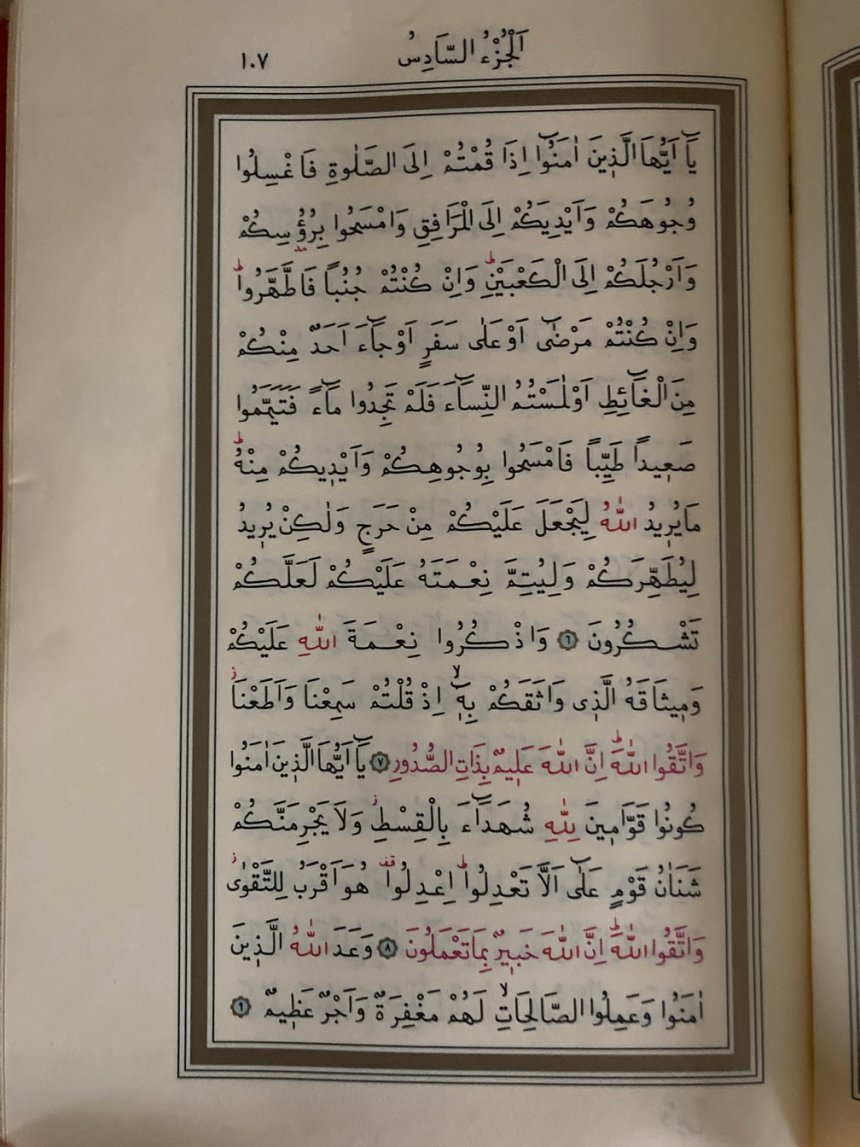 اَلْجُزْءُ السَّادِسُ
١٠٧
يَٓا اَيُّهَا الَّذٖينَ اٰمَنُٓوا اِذَا قُمْتُمْ اِلَى الصَّلٰوةِ فَاغْسِلُوا
وُجُوهَكُمْ وَاَيْدِيَكُمْ اِلَى الْمَرَافِقِ وَامْسَحُوا بِرُؤُ۫سِكُمْ
وَاَرْجُلَكُمْ اِلَى الْكَعْبَيْنِؕ وَاِنْ كُنْتُمْ جُنُباً فَاطَّهَّرُواؕ
وَاِنْ كُنْتُمْ مَرْضٰٓى اَوْ عَلٰى سَفَرٍ اَوْ جَٓاءَ اَحَدٌ مِنْكُمْ
مِنَ الْغَٓائِطِ اَوْ لٰمَسْتُمُ النِّسَٓاءَ فَلَمْ تَجِدُوا مَٓاءً فَتَيَمَّمُوا
صَعٖيداً طَيِّباً فَامْسَحُوا بِوُجُوهِكُمْ وَاَيْدٖيكُمْ مِنْهُؕ
مَا يُرٖيدُ اللّٰهُ لِيَجْعَلَ عَلَيْكُمْ مِنْ حَرَجٍ وَلٰكِنْ يُرٖيدُ
لِيُطَهِّرَكُمْ وَلِيُتِمَّ نِعْمَتَهُ عَلَيْكُمْ لَعَلَّكُمْ
تَشْكُرُونَ ﴿٦﴾ وَاذْكُرُوا نِعْمَةَ اللّٰهِ عَلَيْكُمْ
وَمٖيثَاقَهُ الَّذٖى وَاثَقَكُمْ بِهٖٓۙ اِذْ قُلْتُمْ سَمِعْنَا وَاَطَعْنَاؗ
وَاتَّقُوا اللّٰهَؕ اِنَّ اللّٰهَ عَلٖيمٌ بِذَاتِ الصُّدُورِ ﴿٧﴾ يَٓا اَيُّهَا الَّذٖينَ اٰمَنُوا
كُونُوا قَوَّامٖينَ لِلّٰهِ شُهَدَٓاءَ بِالْقِسْطِؗ وَلَا يَجْرِمَنَّكُمْ
شَنَاٰنُ قَوْمٍ عَلٰٓى اَلَّا تَعْدِلُواؕ اِعْدِلُوا۠ هُوَ اَقْرَبُ لِلتَّقْوٰىؗ
وَاتَّقُوا اللّٰهَؕ اِنَّ اللّٰهَ خَبٖيرٌ بِمَا تَعْمَلُونَ ﴿٨﴾ وَعَدَ اللّٰهُ الَّذٖينَ
اٰمَنُوا وَعَمِلُوا الصَّالِحَاتِۙ لَهُمْ مَغْفِرَةٌ وَاَجْرٌ عَظٖيمٌ ﴿٩﴾